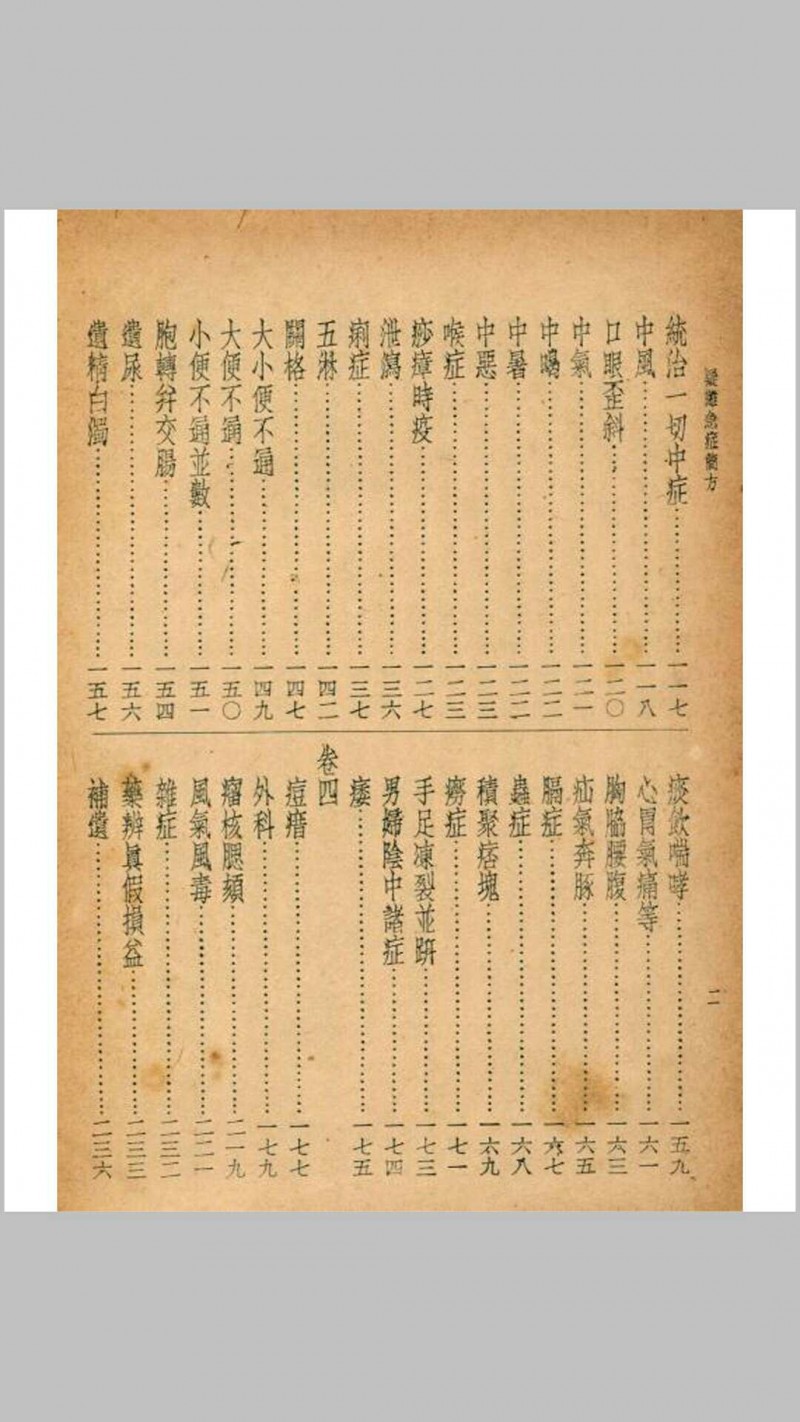 疑難急症簡方
統治一切中症…………一一七
中風…………一一八
口眼歪斜…………一二〇
中氣…………一二一
中暍…………一二二
中暑…………一二二
中惡…………一二三
喉症…………一二三
痧瘴時疫…………一二七
泄瀉…………一三六
痢症…………一三七
五淋…………一四二
關格…………一四七
大小便不通…………一四九
大便不通…………一五〇
小便不通並數…………一五一
胞轉并交腸…………一五四
遺尿…………一五六
遺精白濁…………一五七
痰飲喘哮…………一五九
心胃氣痛等…………一六一
胸脇腰腹…………一六三
疝氣奔豚…………一六五
膈症…………一六七
蟲症…………一六八
積聚痞塊…………一六九
癆症…………一七一
手足凍裂並趼…………一七三
男婦陰中諸症…………一七四
痿…………一七五
卷四
痘瘄…………一七七
外科…………一七九
瘤核腮頦…………二一九
風氣風毒…………二二一
雜症…………二三二
藥辨眞假損益…………二三三
補遺…………二三六
二